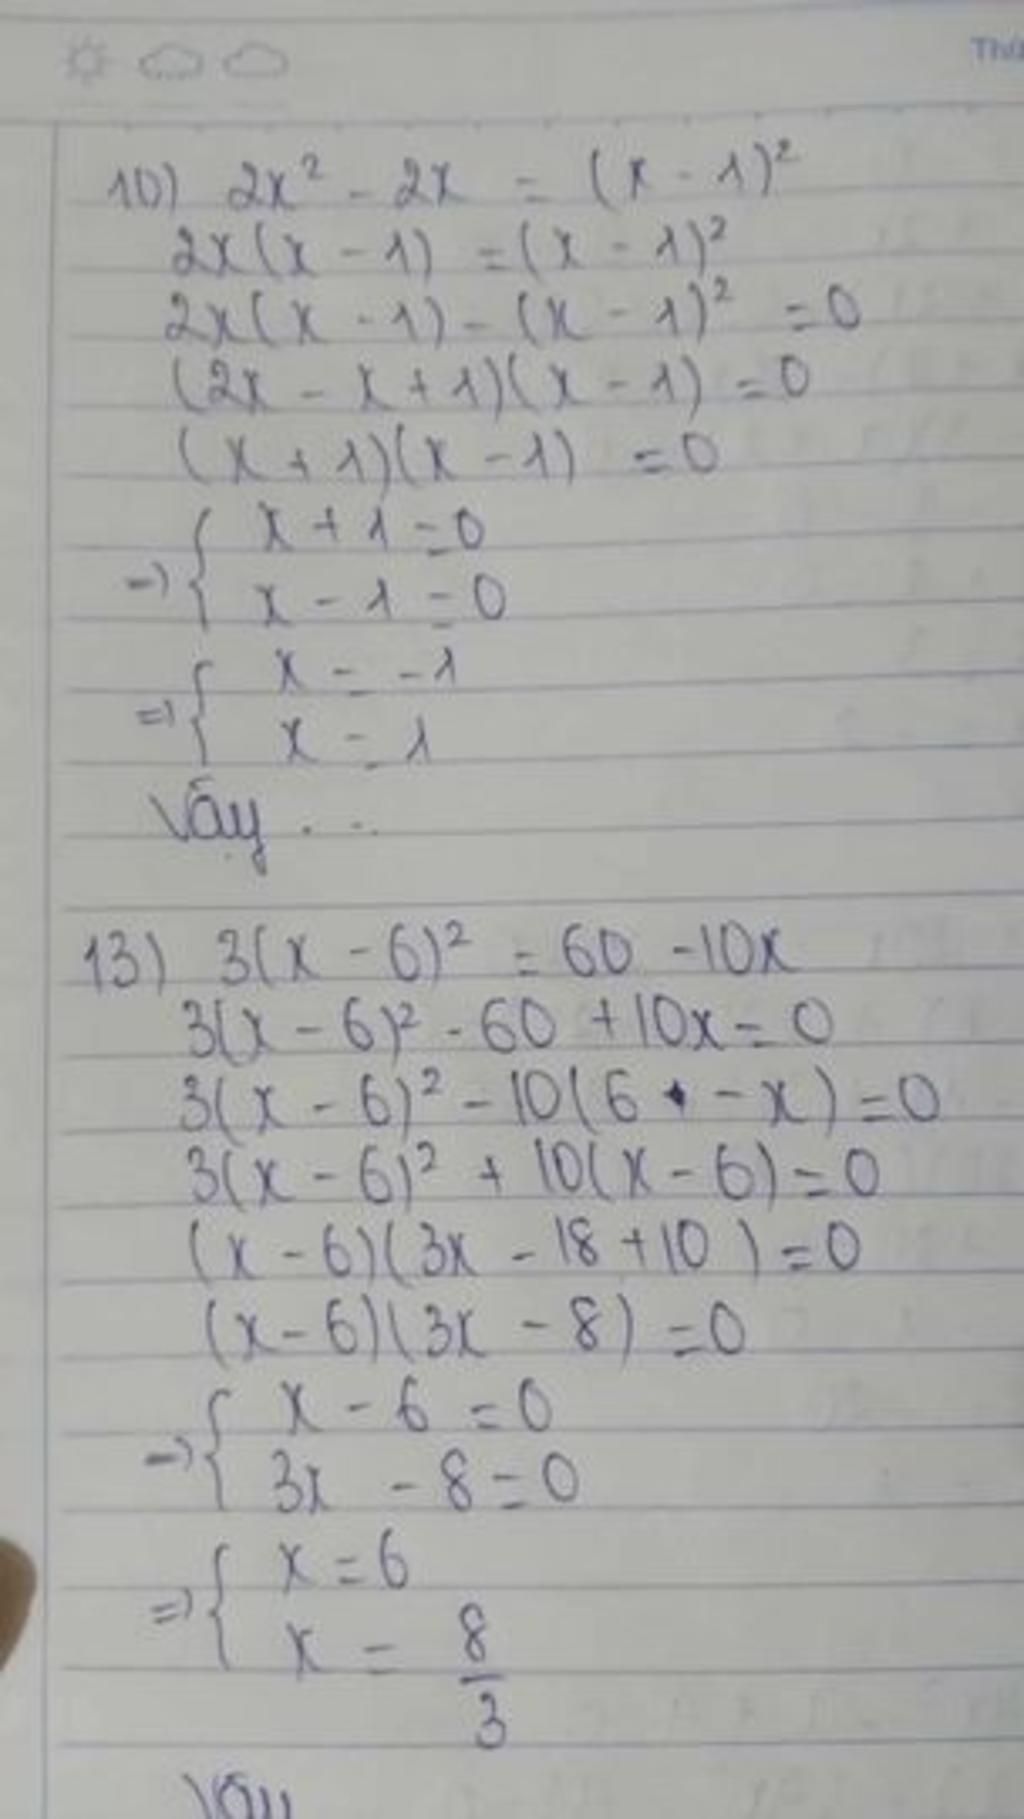 Thứ
10) 2x² - 2x = (x - 1)²
2x(x - 1) = (x - 1)²
2x(x - 1) - (x - 1)² = 0
(2x - x + 1)(x - 1) = 0
(x + 1)(x - 1) = 0
=> { x + 1 = 0
x - 1 = 0
=> { x = -1
x = 1
Vậy . . .
13) 3(x - 6)² = 60 - 10x
3(x - 6)² - 60 + 10x = 0
3(x - 6)² - 10(6 - x) = 0
3(x - 6)² + 10(x - 6) = 0
(x - 6)(3x - 18 + 10 ) = 0
(x - 6)(3x - 8) = 0
=> { x - 6 = 0
3x - 8 = 0
=> { x = 6
x = 8/3
Vậy